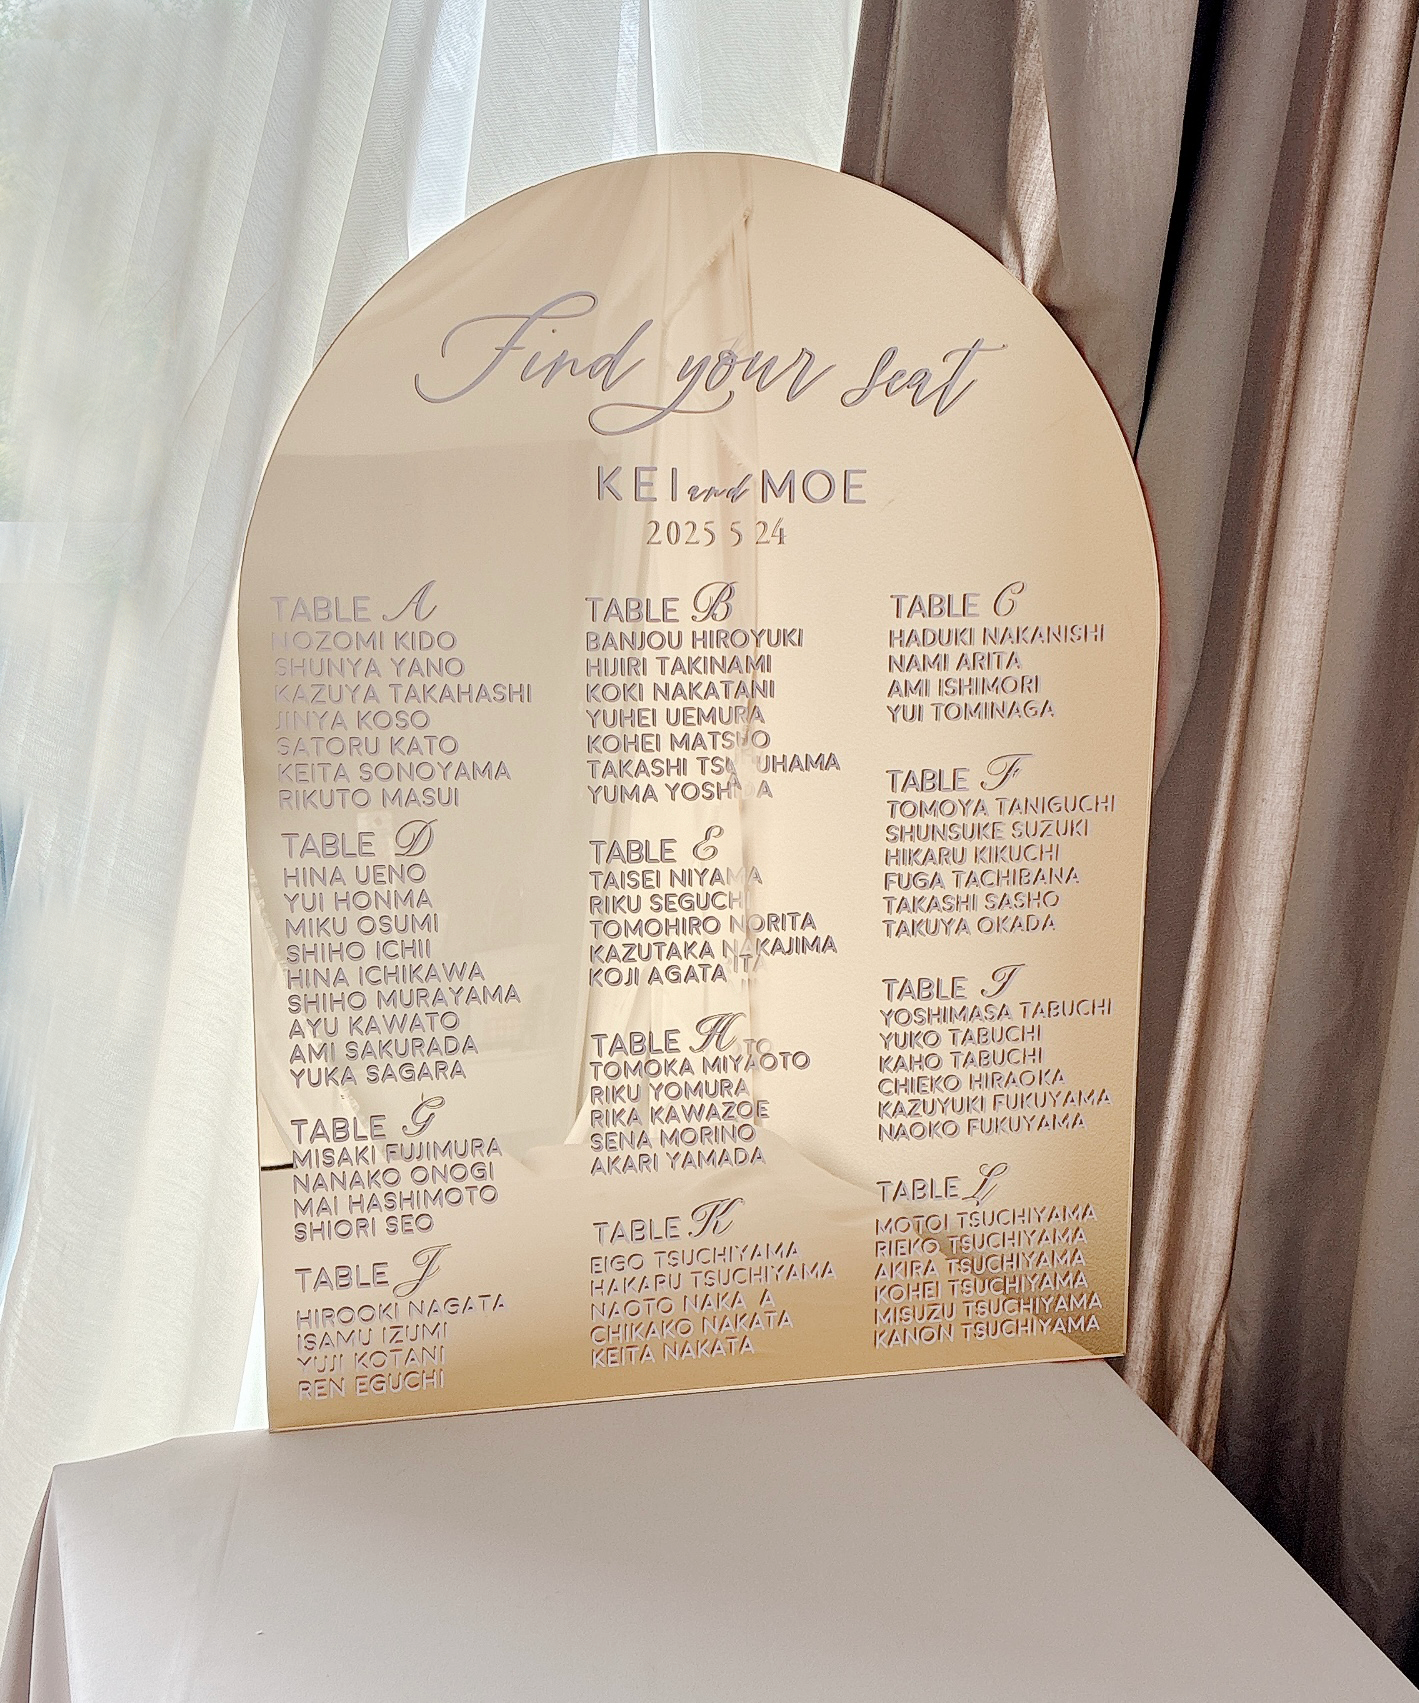 Find your seat
KEI and MOE
2025 5 24
TABLE A
NOZOMI KIDO
SHUNYA YANO
KAZUYA TAKAHASHI
JINYA KOSO
SATORU KATO
KEITA SONOYAMA
RIKUTO MASUI
TABLE B
BANJOU HIROYUKI
HIJIRI TAKINAMI
KOKI NAKATANI
YUHEI UEMURA
KOHEI MATSUO
TAKASHI
YUMA
TABLE C
HADUKI NAKANISHI
NAMI ARITA
AMI ISHIMORI
YUI TOMINAGA
TABLE D
HINA UENO
YUI HONMA
MIKU OSUMI
SHIHO ICHII
HINA ICHIKAWA
SHIHO MURAYAMA
AYU KAWATO
AMI SAKURADA
YUKA SAGARA
TABLE E
TAISEI NIYAMA
RIKU SEGUCHI
TOMOHIRO NORITA
KAZUTAKA NAKAJIMA
KOJI AGATA
TABLE F
TOMOYA TANIGUCHI
SHUNSUKE SUZUKI
HIKARU KIKUCHI
FUGA TACHIBANA
TAKASHI SASHO
TAKUYA OKADA
TABLE G
MISAKI FUJIMURA
NANAKO ONOGI
MAI HASHIMOTO
SHIORI SEO
TABLE H
TOMOKA
RIKU YOMURA
RIKA KAWAZOE
SENA MORINO
AKARI YAMADA
TABLE I
YOSHIMASA TABUCHI
YUKO TABUCHI
KAHO TABUCHI
CHIEKO HIRAOKA
KAZUYUKI FUKUYAMA
NAOKO FUKUYAMA
TABLE J
HIROOKI NAGATA
ISAMU IZUMI
YUJI KOTANI
REN EGUCHI
TABLE K
EIGO TSUCHIYAMA
HAKARU TSUCHIYAMA
NAOTO
CHIKAKO NAKATA
KEITA NAKATA
TABLE L
MOTOI TSUCHIYAMA
RIEKO TSUCHIYAMA
AKIRA TSUCHIYAMA
KOHEI TSUCHIYAMA
MISUZU TSUCHIYAMA
KANON TSUCHIYAMA